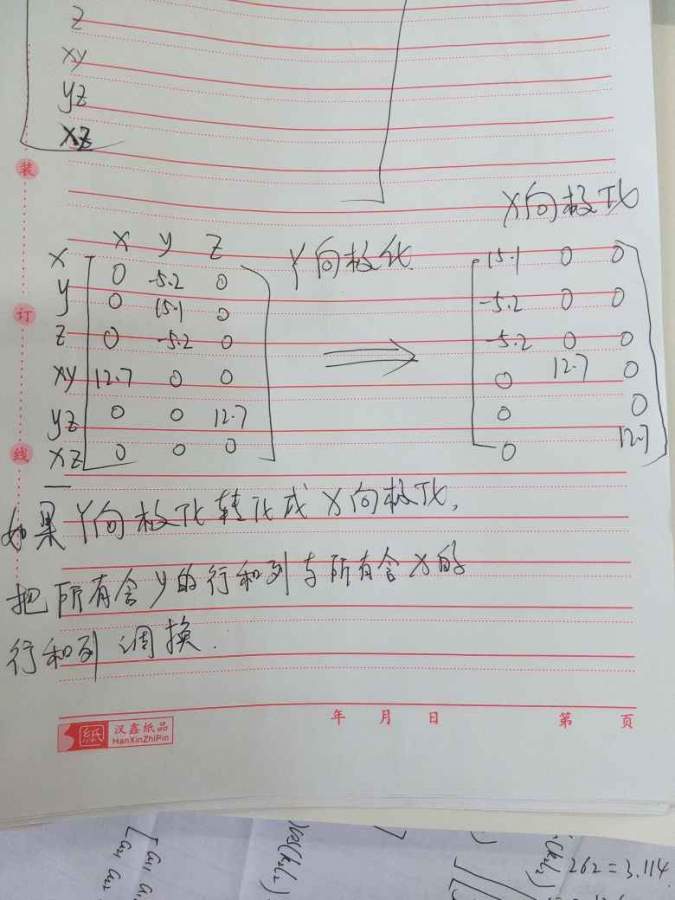 z
xy
yz
xz
装
X向极化
x y z
x 0 -5.2 0
y 0 15.1 0
z 0 -5.2 0
xy 12.7 0 0
yz 0 0 12.7
xz 0 0 0
Y向极化
15.1 0 0
-5.2 0 0
-5.2 0 0
0 12.7 0
0 0
0 12.7
订
线
如果Y向极化转化成X向极化,
把所有含y的行和列与所有含X的
行和列调换.
年 月 日 第 页
紙 汉鑫纸品
HanXinZhiPin
262=3.114